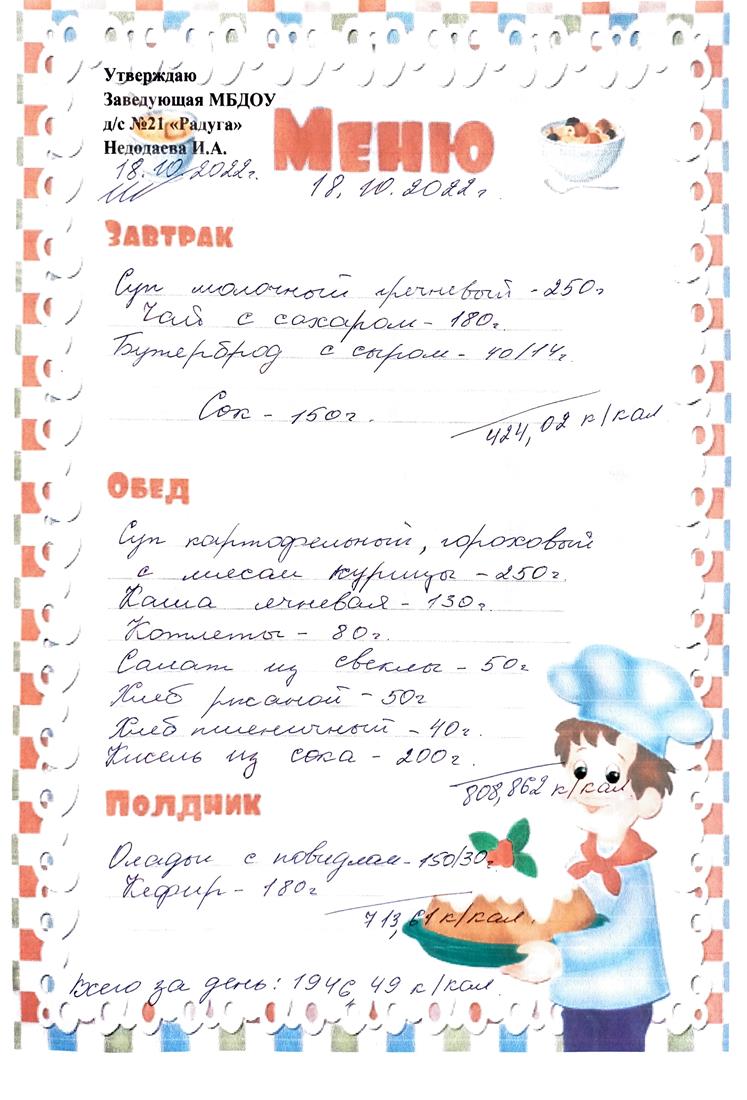 Утверждаю
Заведующая МБДОУ
д/с №21 «Радуга»
Недодаева И.А.
18.10.2022г.
Меню
18.10.2022г.
Завтрак
Суп молочный гречневый - 250г
Чай с сахаром - 180г.
Бутерброд с сыром - 40/14г.
Сок - 150г.
424,02 к/кал
Обед
Суп картофельный, гороховый
с мясом курицы - 250г.
Каша ячневая - 130г.
Котлеты - 80г.
Салат из свеклы - 50г
Хлеб ржаной - 50г
Хлеб пшеничный - 40г.
Кисель из сока - 200г.
808,862 к/кал.
Полдник
Оладьи с повидлом - 150/30г.
Кефир - 180г
713,61 к/кал.
Всего за день: 1946,49 к/кал.